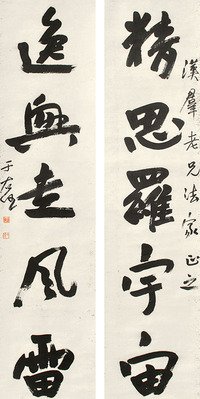 漢群老兄法家正之
精思羅宇宙
逸興走風雷
于右任